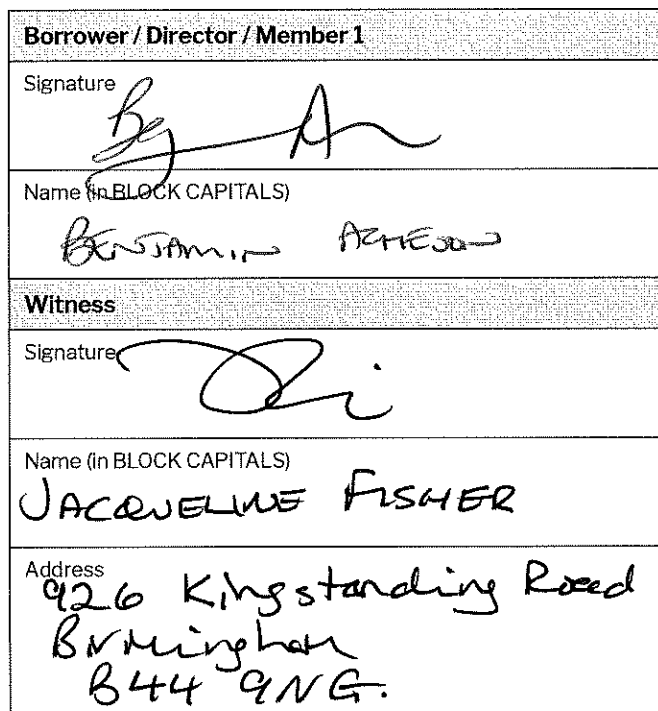 Borrower / Director / Member 1
Signature
Name (in BLOCK CAPITALS)
BENJAMIN ACHESON
Witness
Signature
Name (in BLOCK CAPITALS)
JACQUELINE FISHER
Address
926 Kingstanding Road
Birmingham
B44 9NG.